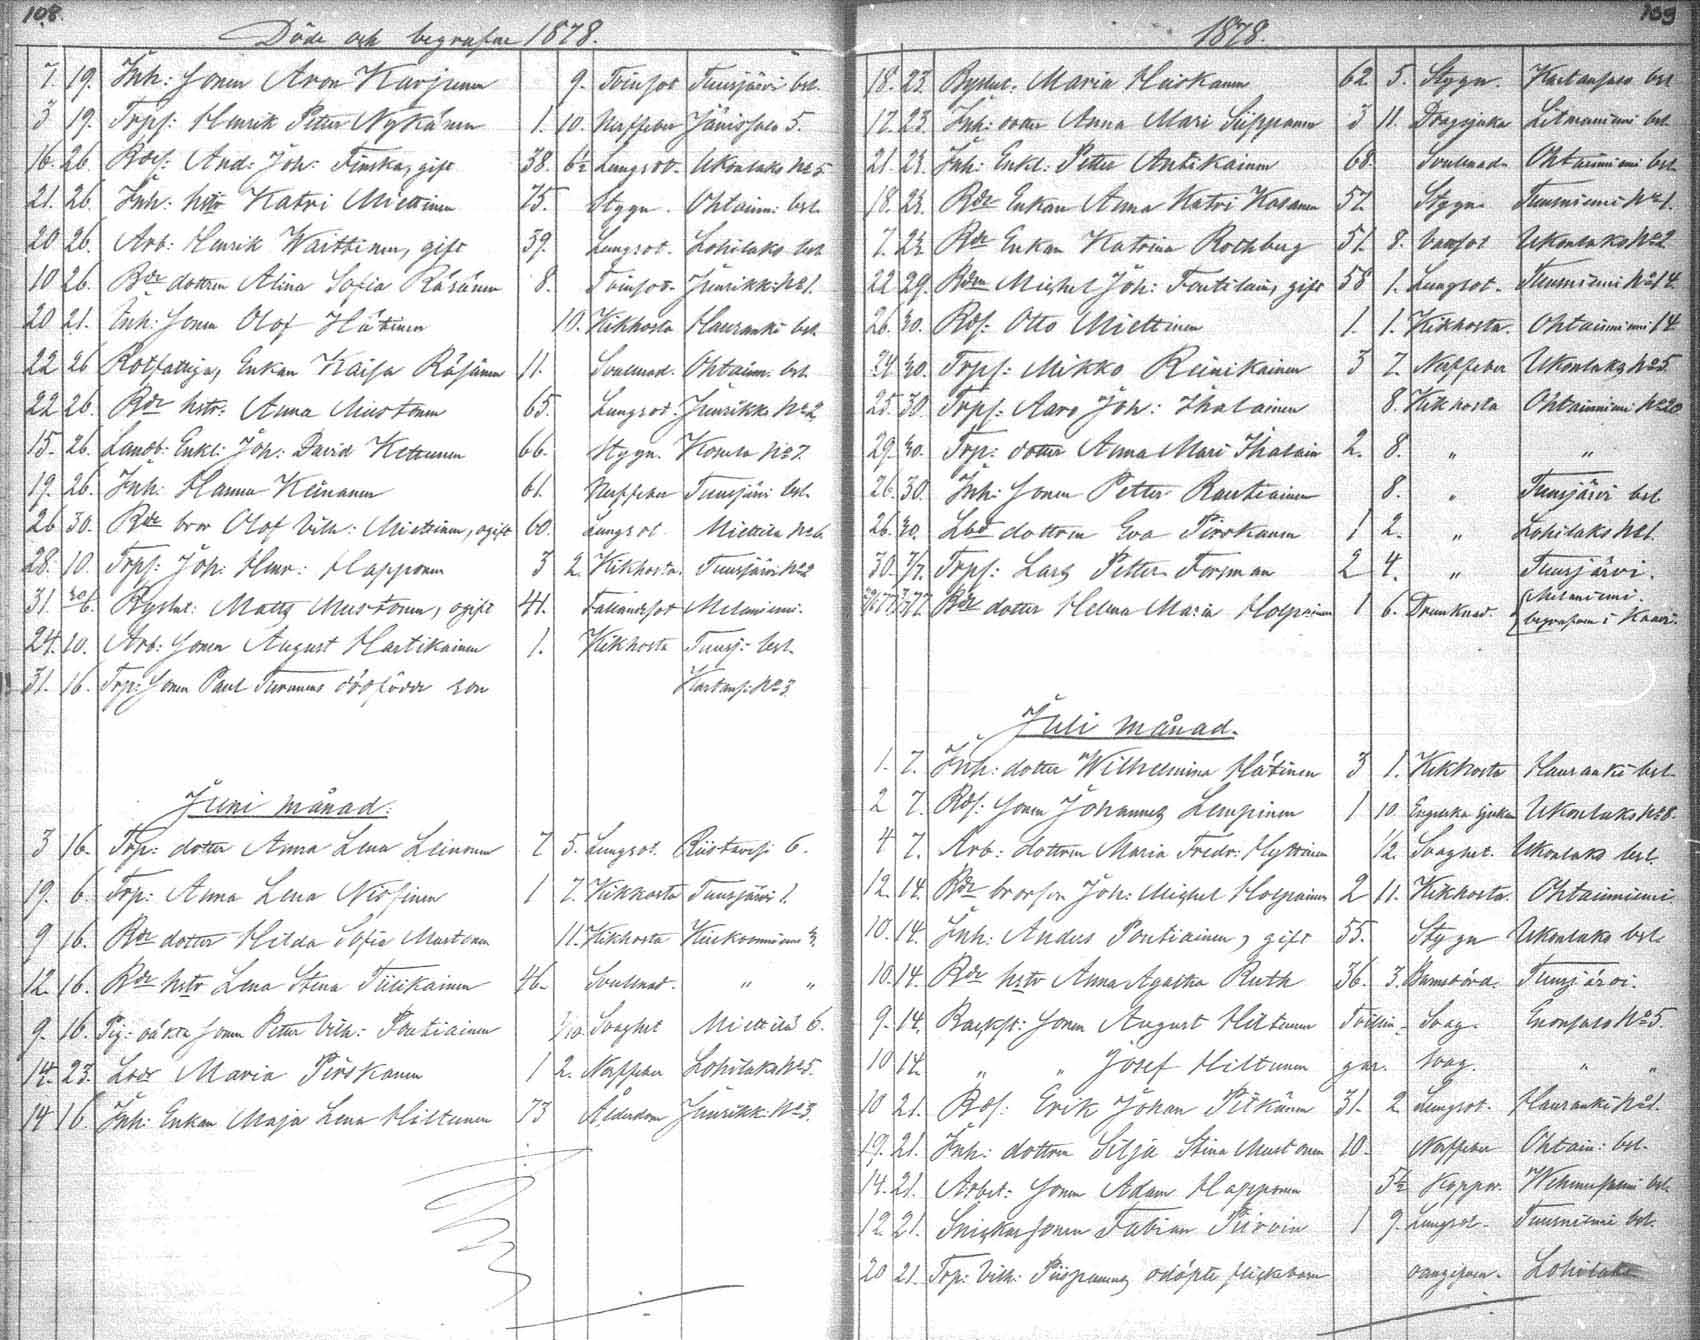 108.
Döde och begrafne 1878.
7. 19. Inh: sonen Aron Karjunen 9. Tvinsot Tuusjärvi bst.
3 19. Torps: Henrik Petter Nykänen 1. 10. Nerffeber Jänissalo 5.
16. 26. Bdes: And: Joh: Finska, gift 38. 6½ Lungsot. Ukonlaks No 5
21. 26. Inh: hstr Katri Miettinen 75. Stygn. Ohtainn: bst.
20 26. Arb: Henrik Waittinen, gift 39. Lungsot. Lohilaks bst
10 26. Bdr dottren Alina Sofia Räsänen 8. Tvinsot. Juurikk: No 1.
20 21. Inh: sonen Olof Hätinen 10. Kikhosta Hauranki bst.
22 26 Rotfattiga, Enkan Kaisa Räsänen 11. Svullnad. Ohtainn. bst.
22 26. Bdr hstr: Anna Mustonen 65. Lungsot. Juurikka No 2
15. 26. Landb: Enkl: Joh: David Ketunen 66. Stygn. Konola No 7.
19. 26. Inh: Hannu Keinanen 61. Nerffeber Tuusjärvi bst.
26 30. Bdr bror Olof Vilh: Miettinen, ogift 60. Lungsot. Miettila No 6.
28. 10. Torps: Joh: Henr: Happonen 3 2. Kikhosta. Tuusjärvi No 2
31. 30/6. Bysbt: Matts Mustonen, ogift 41. Fallandsot Melaniemi.
24. 10. Arb: sonen August Hartikainen 1. Kikhosta Tuusj: bst.
31. 16. Torp: sonen Paul Turunens dödfödde son Kartans: No 3.
Juni månad:
3 16. Torp: dotter Anna Lena Leinonen 7 5. Lungsot. Riistaves: 6.
19. 6. Torp: Anna Lena Nissinen 1 7. Kikhosta Tuusjärvi 1.
9 16. Bdr dotter Hilda Sofia Mustonen 11. Kikhosta
12. 16. Bdr hstr Lena Stina Tiilikainen 46. Svullnad. " "
9. 16. Pig: oäkta sonen Peter Vilh: Poutiainen 1/10. Svaghet Miettilä 6.
14. 23. Lbdr Maria Pirskanen 1 2. Nerffeber Lohilaks No 5.
14 16. Inh: Enkan Maja Lena Hiltunen 73 Ålderdom Juurikk: No 3.
109
1878.
18. 23. Bysbt: Maria Harkanen 62. 5. Stygn. Kartansalo bst
17. 23. Inh: dotter Anna Mari Siippanen 3 11. Dragsjuka Litmaniemi bst.
21. 23. Inh: Enkl: Petter Antikainen 68. Svullnad. Ohtainniemi bst
18. 23. Bdr Enkan Anna Katri Kosanen 57. Stygn. Tuusniemi No 1.
7. 23. Bdr Enkan Katrina Rothberg 51. 8. Vattsot Ukonlaks No 2
22 29. Bdn Michel Joh: Foutilain, gift 58 1. Lungsot. Tuusniemi No 14.
26. 30. Bds: Otto Miettinen 1. 1. Kikhosta. Ohtainniemi 14
24 30. Torps: Mikko Reinikainen 3 7. Nerffeber Ukonlaks No 5.
25. 30. Torps: Aaro Joh: Ihalainen 8. Kikhosta Ohtainniemi No 20
29. 30. Torp: dotter Anna Mari Ihalain 2. 8. " "
26. 30. Inh: sonen Petter Rautiainen 8. " Tuusjärvi bst
26. 30. Lbd dottren Eva Pirskanen 1 2. " Lohilaks No 1.
30. 7/7. Torps: Lars Petter Forsman 2 4. " Tuusjärvi.
Bdr dotter Helena Maria Holpainen 1 6. Drunknad. Melaniemi.
begrafven i Kaavi.
Juli månad.
1. 7. Inh: dotter Wilhelmina Hätinen 3 1. Kikhosta Hauranki bst
2 7. Bds: sonen Johannes Lempinen 1 10 Engelska sjukan Ukonlaks No 8.
4 7. Arb: dottren Maria Fredr: Hyttinen 12. Svaghet. Ukonlaks bst.
12. 14. Bdr brorson Joh: Michel Holpainen 2 11. Kikhosta. Ohtainniemi
10. 14. Inh: Anders Poutiainen, gift 55. Stygn Ukonlaks bst.
10. 14. Bdr hstr Anna Agatha Ruth 36. 3. Barnsbörd. Tuusjärvi.
9. 14. Backst: sonen August Hiltunen Tvillin- Svag. Enonsalo No 5.
10 14. " " Josef Hiltunen gar. Svag. " "
10 21. Bds: Erik Johan Pitkänen 31. 2 Lungsot. Hauranki No 1.
19. 21. Inh: dottren Silja Stina Mustonen 10. Nerffeber Ohtain: bst.
14. 21. Arbet: sonen Adam Happonen 5½ Koppor. Wehmassuni bst.
12. 21. Snickarsonen Fabian Pirvin 1 9. Lungsot. Tuusniemi bst.
20 21. Torp: Vilh: Piispanens odöpte flickebarn oangifven. Lohilaks